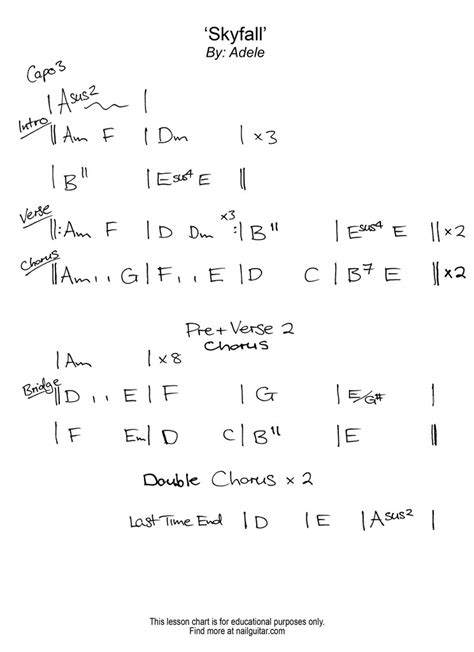 ‘Skyfall’
By: Adele
Capo 3
| Asus2 |
Intro || Am F | Dm | x3
| B11 | Esus4 E ||
Verse ||: Am F | D Dm x3 :| B11 | Esus4 E || x2
Chorus || Am , , G | F , , E | D C | B7 E || x2
Pre + Verse 2
Chorus
| Am | x8
Bridge || D , , E | F | G | E/G# |
| F Em | D C | B11 | E ||
Double Chorus x 2
Last Time End | D | E | Asus2 |
This lesson chart is for educational purposes only.
Find more at nailguitar.com